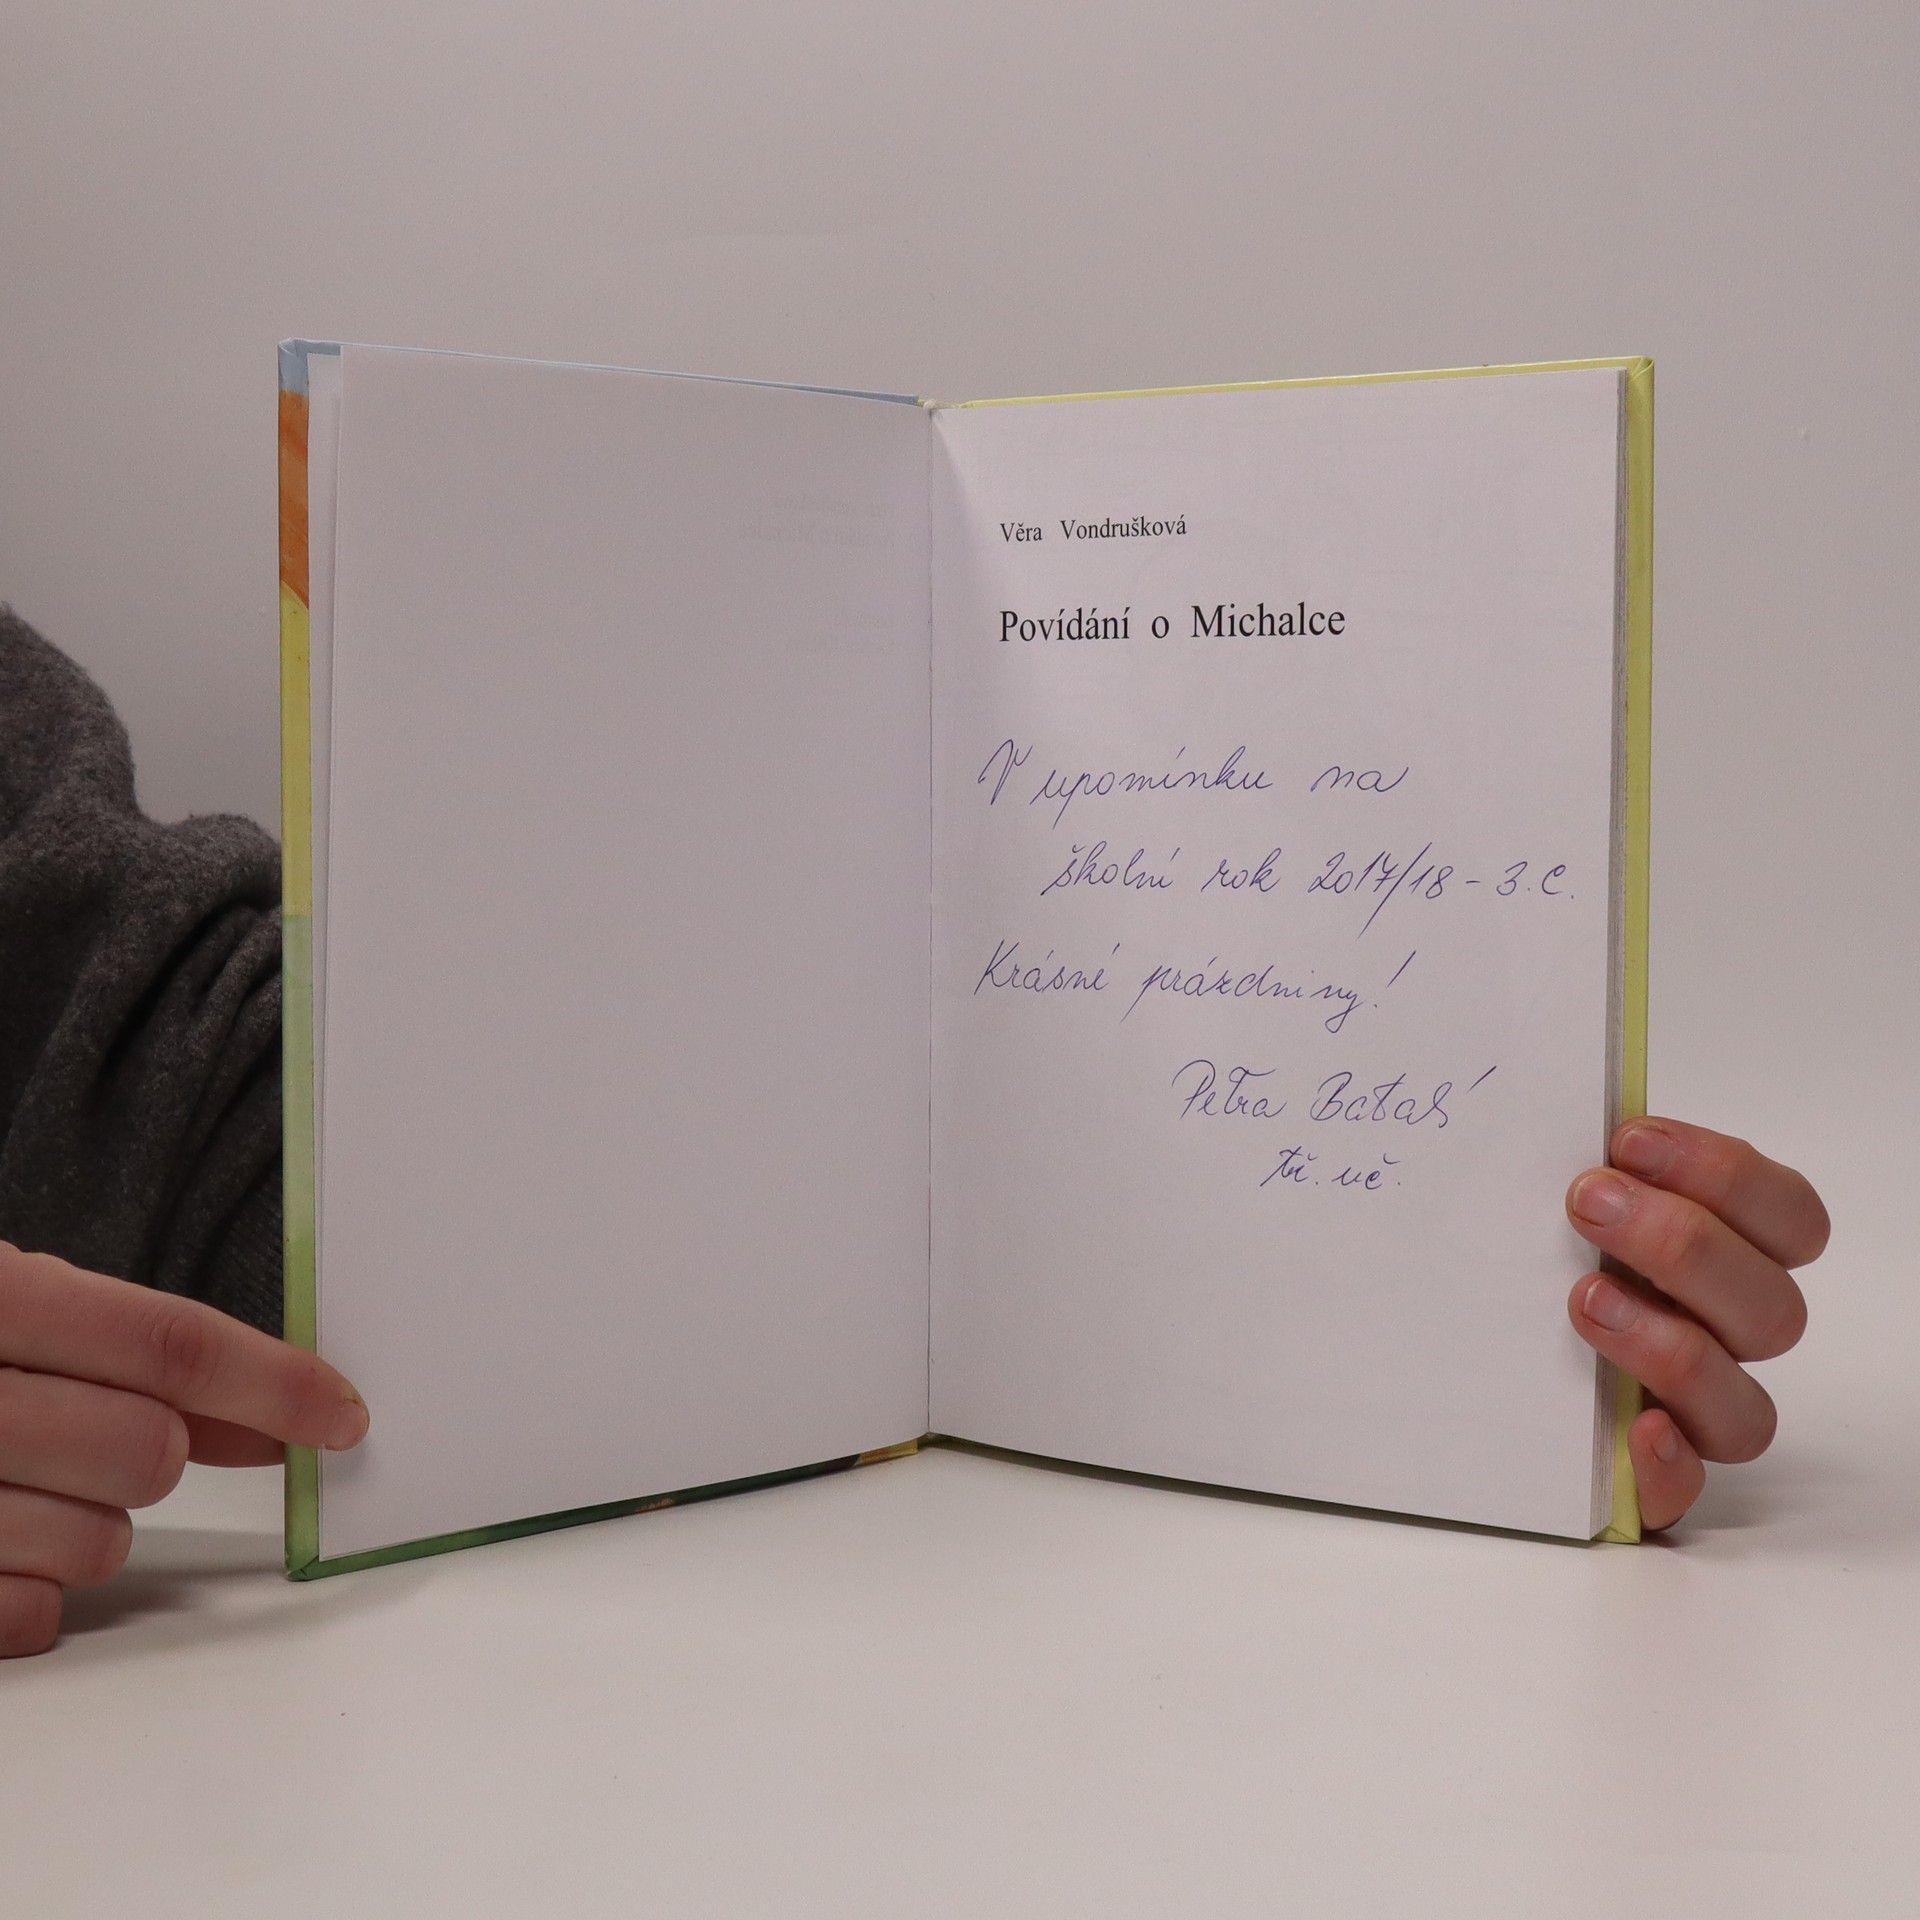 Věra Vondrušková
Povídání o Michalce
V upomínku na
školní rok 2017/18 - 3.C.
Krásné prázdniny!
Petra
tř. uč.